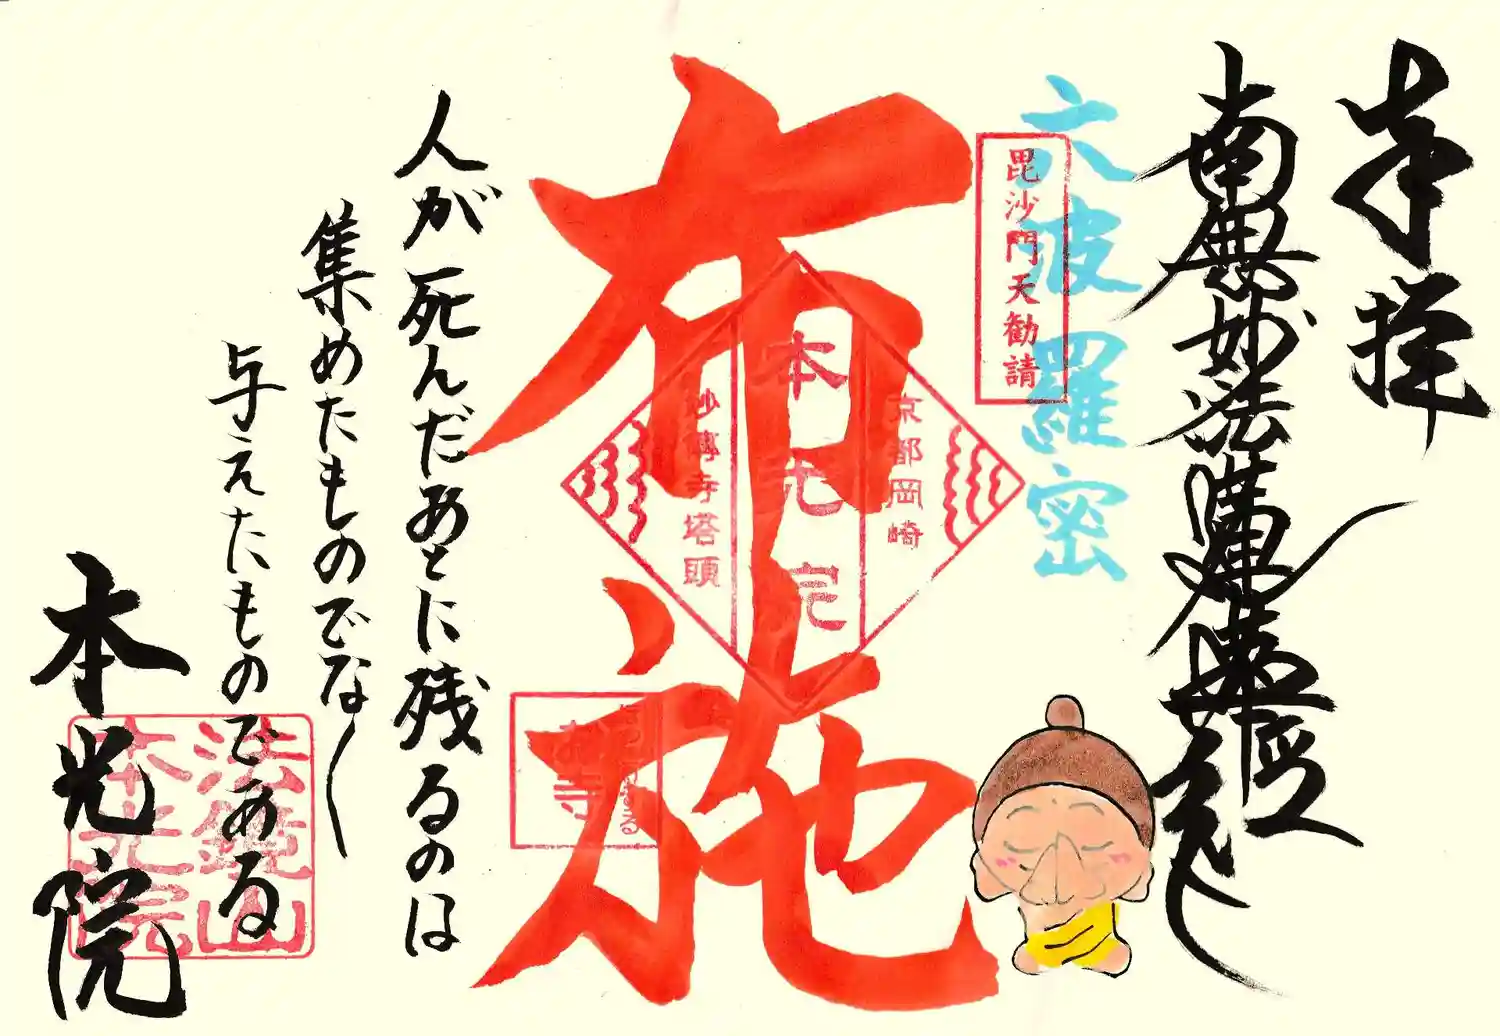 奉拝
南無妙法蓮華経
六波羅密
毘沙門天勧請
布施
京都岡崎
本光院
妙傳寺塔頭
お寺
人が死んだあとに残るのは
集めたものでなく
与えたものである
法鏡山
本光院
本光院